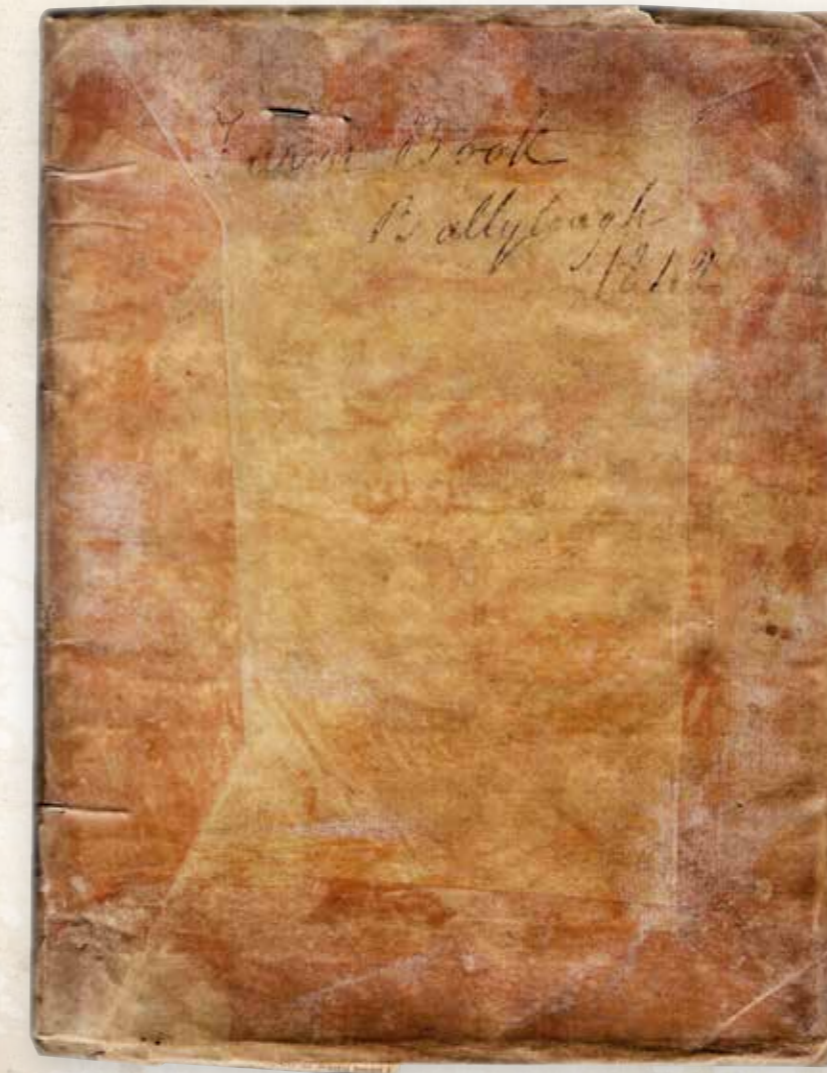 Farm Book
Ballylough
1842